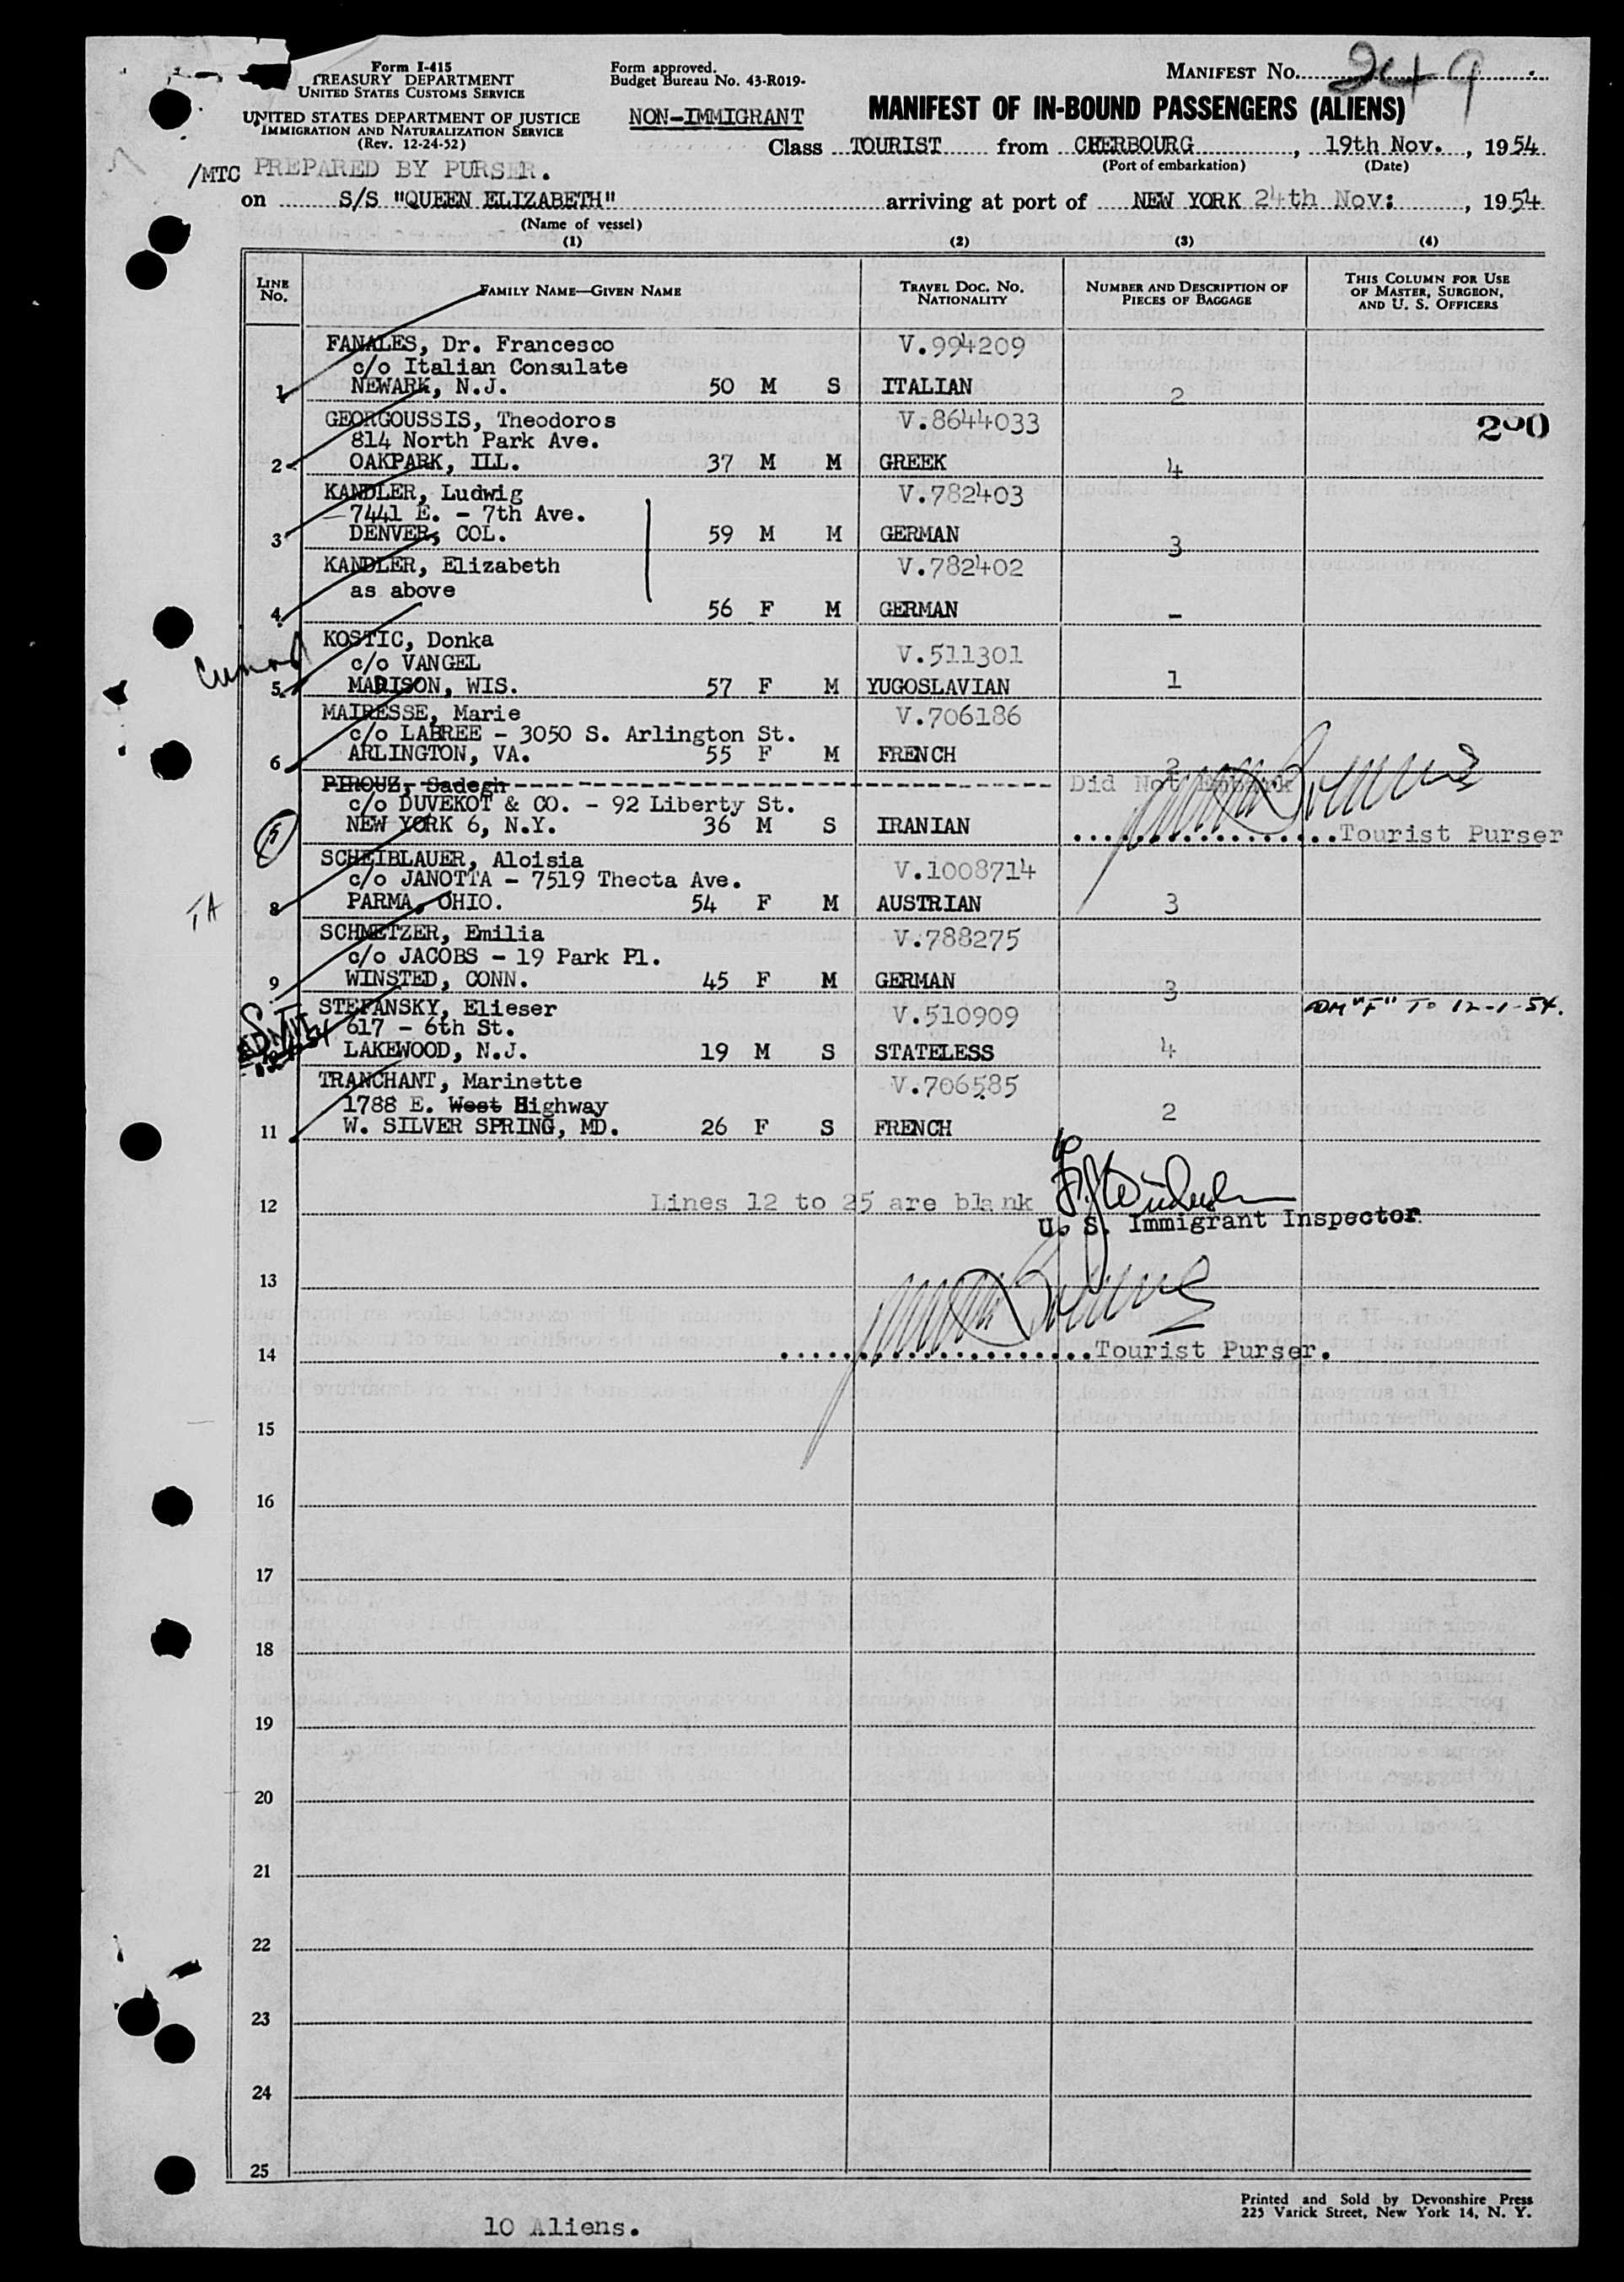 Form I-415
TREASURY DEPARTMENT
UNITED STATES CUSTOMS SERVICE
UNITED STATES DEPARTMENT OF JUSTICE
IMMIGRATION AND NATURALIZATION SERVICE
(Rev. 12-24-52)
Form approved.
Budget Bureau No. 43-R019-
NON-IMMIGRANT
MANIFEST NO. 249
MANIFEST OF IN-BOUND PASSENGERS (ALIENS)
Class TOURIST from CHERBOURG, 19th Nov., 1954
(Port of embarkation) (Date)
/MTC PREPARED BY PURSER.
on S/S "QUEEN ELIZABETH" arriving at port of NEW YORK 24th Nov:, 1954
(Name of vessel)
(1) (2) (3) (4)
LINE No. FAMILY NAME—GIVEN NAME TRAVEL DOC. NO. NATIONALITY NUMBER AND DESCRIPTION OF PIECES OF BAGGAGE THIS COLUMN FOR USE OF MASTER, SURGEON, AND U. S. OFFICERS
FANALES, Dr. Francesco V.994209
c/o Italian Consulate
1 NEWARK, N.J. 50 M S ITALIAN 2
GEORGOUSSIS, Theodoros V.8644033 200
814 North Park Ave.
2 OAKPARK, ILL. 37 M M GREEK 4
KANDLER, Ludwig V.782403
7441 E. - 7th Ave.
3 DENVER, COL. 59 M M GERMAN 3
KANDLER, Elizabeth V.782402
as above
4 56 F M GERMAN -
KOSTIC, Donka V.511301
Cunard c/o VANGEL
5 MADISON, WIS. 57 F M YUGOSLAVIAN 1
MAIRESSE, Marie V.706186
c/o LABREE - 3050 S. Arlington St.
6 ARLINGTON, VA. 55 F M FRENCH 2
PIROUZ, Sadegh - - - - - - - - Did Not Embark
c/o DUVEKOT & CO. - 92 Liberty St.
NEW YORK 6, N.Y. 36 M S IRANIAN ..................Tourist Purser
SCHEIBLAUER, Aloisia V.1008714
c/o JANOTTA - 7519 Theota Ave.
TA 8 PARMA, OHIO. 54 F M AUSTRIAN 3
SCHMETZER, Emilia V.788275
c/o JACOBS - 19 Park Pl.
9 WINSTED, CONN. 45 F M GERMAN 3
STEFANSKY, Elieser V.510909 ADM "F" TO 12-1-54.
617 - 6th St.
LAKEWOOD, N.J. 19 M S STATELESS 4
TRANCHANT, Marinette V.706585
1788 E. West Highway
11 W. SILVER SPRING, MD. 26 F S FRENCH 2
12 Lines 12 to 25 are blank
U. S. Immigrant Inspector
13
14 ......................Tourist Purser.
15
16
17
18
19
20
21
22
23
24
25
Printed and Sold by Devonshire Press
225 Varick Street, New York 14, N. Y.
10 Aliens.